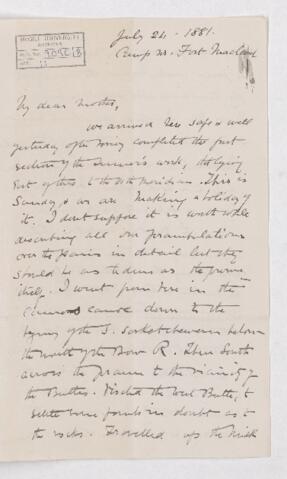 McGILL UNIVERSITY
ARCHIVES
July 24 - 1881.
Camp nr. Fort Macleod
My dear Mother,
we arrived here safe & well
yesterday afternoon having completed the first
section of the summer's work, the lying
East of this, to the meridian. This is
Sunday & we are making a holiday
of it. I dont suppose it is worth while
describing all our perambulations
over the plains in detail but they
would be as tedious as the prairie
itself. I went from here in the
canvas canoe down to the
of the S. Saskatchewan below
the mouth of the Bow R. Then South
across the prairie to the vicinity of
the Buttes. Visited the West Butte, to
settle some points in doubt as to
the rocks. Travelled up the Milk